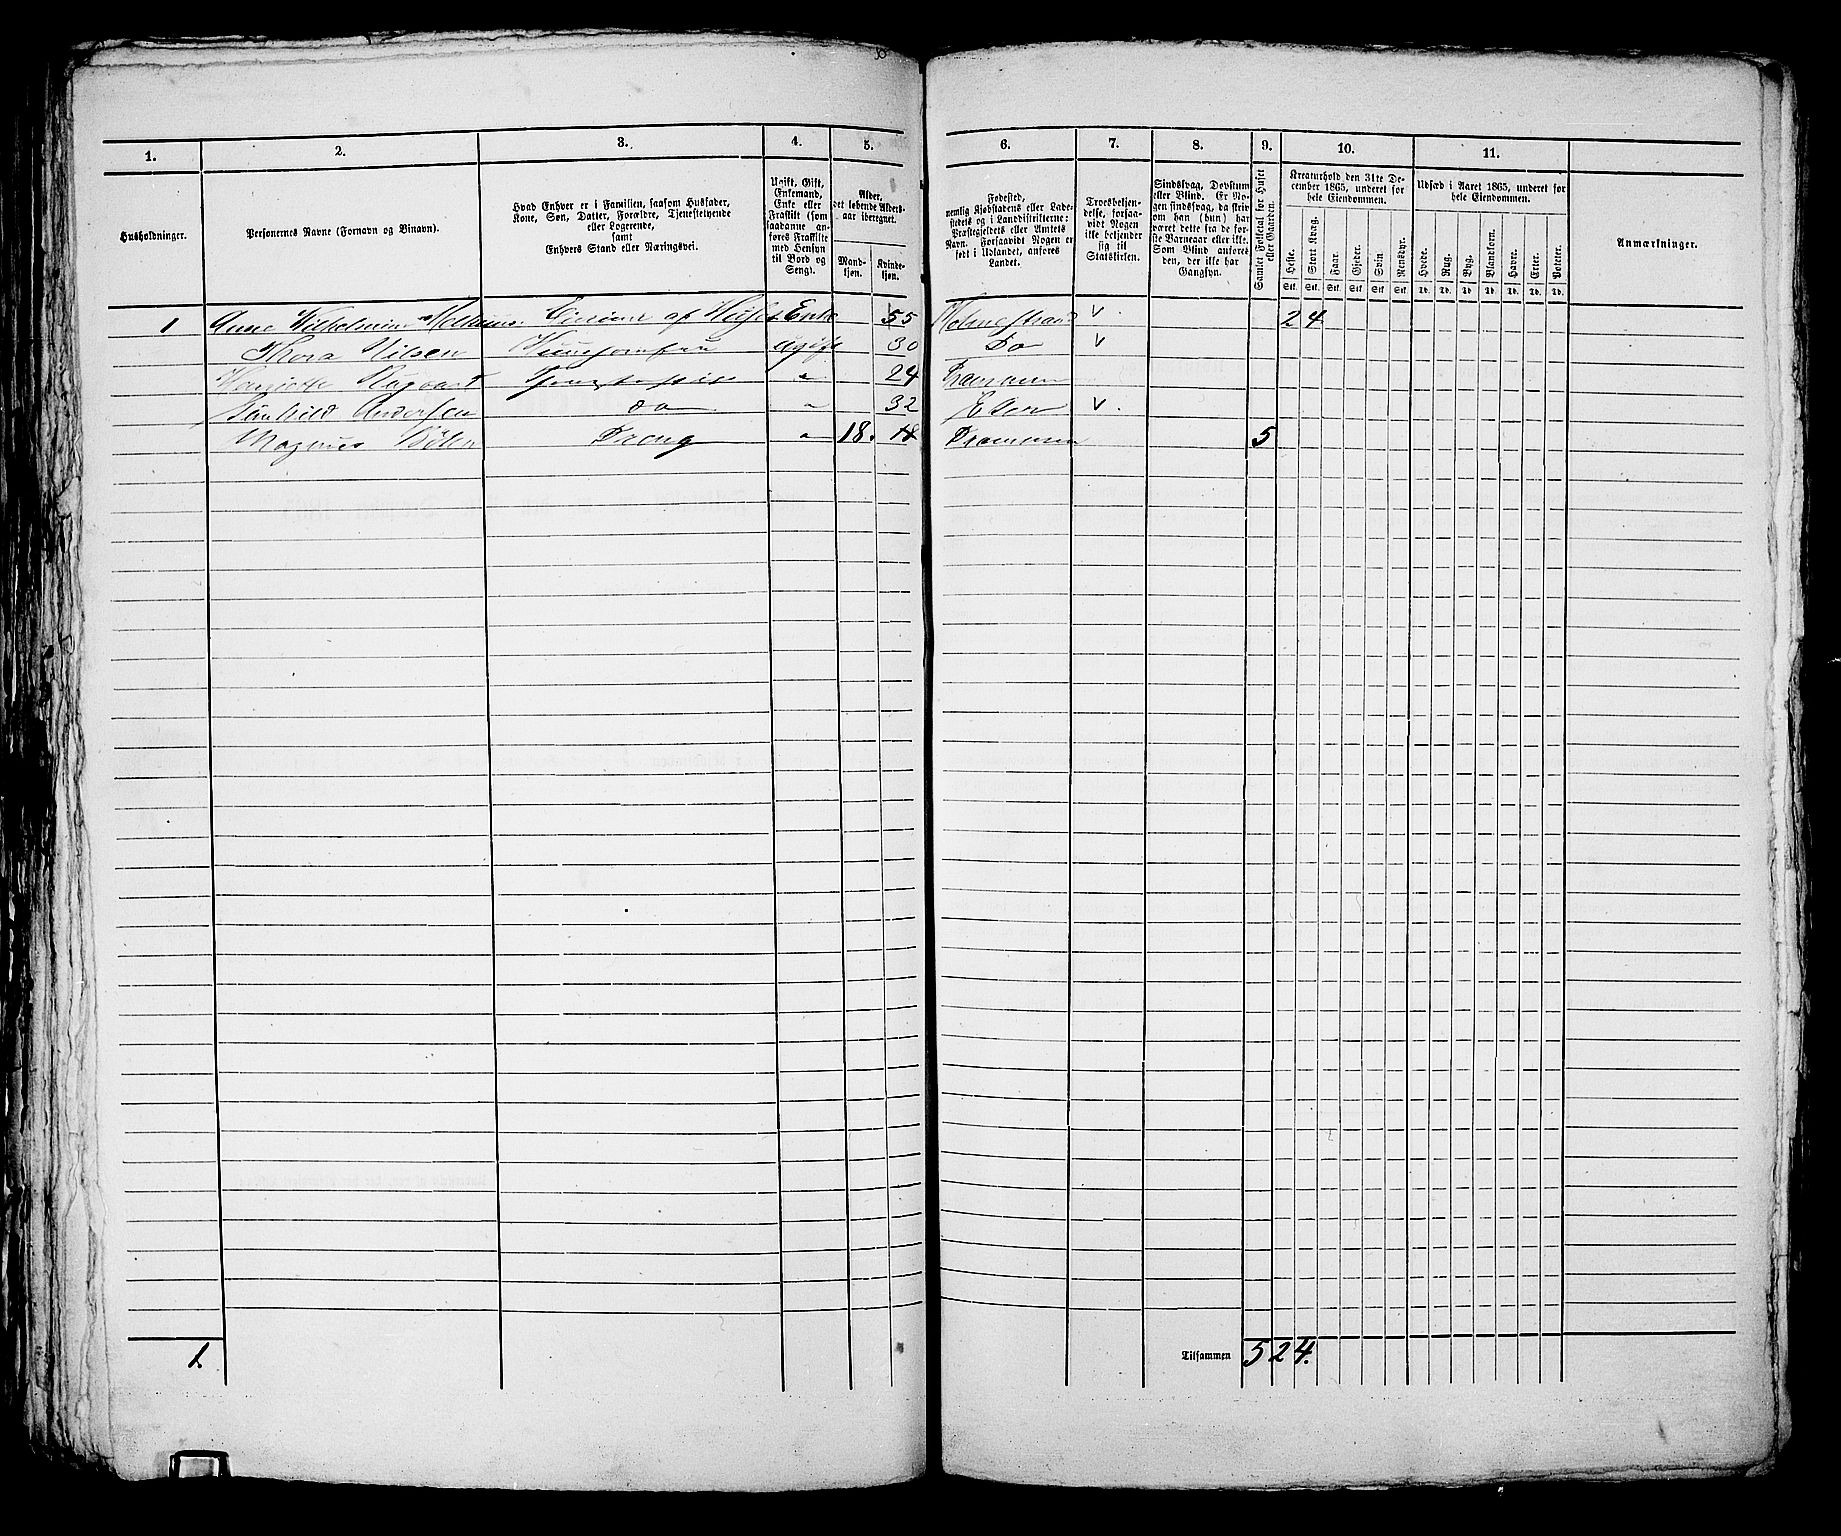 1.
2.
3.
4.
5.
6.
7.
8.
9.
10.
11.
Husholdninger.
Personernes Navne (Fornavn og Binavn).
Hvad Enhver er i Familien, saasom Husfader,
Kone, Søn, Datter, Forældre, Tjenestetyende
eller Logerende,
samt
Enhvers Stand eller Næringsvei.
Ugift, Gift,
Enkemand,
Enke eller
Fraskilt (som
saadanne an-
føres Fraskilte
med Hensyn
til Bord og
Seng).
Alder,
det løbende Alders-
aar iberegnet.
Mand-
kjøn.
Kvinde-
kjøn.
Fødested,
nemlig Kjøbstadens eller Lade-
stedets og i Landdistrikterne:
Præstegjeldets eller Amtets
Navn. Forsaavidt Nogen er
født i Udlandet, anføres
Landet.
Troesbekjen-
delse, forsaa-
vidt Nogen
ikke bekjender
sig til
Statskirken.
Sindssvag, Døvstum
eller Blind. Er No-
gen sindssvag, da skriv
om han (hun) har
været dette fra de før-
ste Barneaar eller ikke.
Som Blind anføres
den, der ikke har
Gangsyn.
Samlet Folketal for Huset
eller Gaarden.
Kreaturhold den 31te De-
cember 1865, underet for
hele Eiendommen.
Heste.
Stort Kvæg.
Faar.
Gjeder.
Svin
Rensdyr.
Stk. Stk. Stk. Stk. Stk. Stk.
Udsæd i Aaret 1865, underet for
hele Eiendommen.
Hvede.
Rug.
Byg.
Blandkorn.
Havre.
Erter.
Poteter.
Td. Td. Td. Td. Td. Td. Td.
Anmærkninger.
1 Anne Wilhelmine Eierinde af Huset Enke 55 Holmestrand v. 2 4
Thora Nilsen Huusjomfru ugift 30 Do v
24 Drammen
Andersen do 32 v.
Magnus Dreng 18. 18 Drammen 5
1.
Tilsammen 5 2 4.